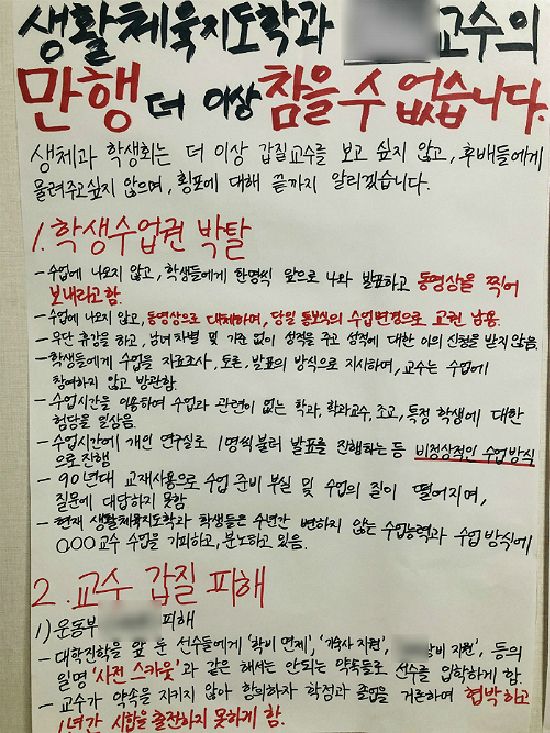 생활체육지도학과 교수의
만행 더 이상 참을 수 없습니다.
생체과 학생회는 더 이상 갑질교수를 보고 싶지 않고, 후배들에게
물려주고싶지 않으며, 횡포에 대해 끝까지 알리겠습니다.
1. 학생수업권 박탈
- 수업에 나오지 않고, 학생들에게 한명씩 앞으로 나와 발표하고 동영상을 찍어
보내라고함.
- 수업에 나오지 않고, 동영상으로 대체하며, 당일 통보식의 수업변경으로 교권 남용.
- 무단 휴강을 하고, 남녀차별 및 기준 없이 성적을 주고 성적에 대한 이의 신청을 받지않음.
- 학생들에게 수업을 자료조사, 토론, 발표의 방식으로 지시하며, 교수는 수업에
참여하지 않고 방관함.
- 수업시간을 이용하여 수업과 관련이 없는 학과, 학과교수, 조교, 특정 학생에 대한
험담을 일삼음.
- 수업시간에 개인 연구실로 1명씩 불러 발표를 진행하는 등 비정상적인 수업방식
으로 진행
- 90년대 교재사용으로 수업 준비 부실 및 수업의 질이 떨어지며,
질문에 대답하지 못함
- 현재 생활체육지도학과 학생들은 수년간 변하지 않는 수업능력과 수업 방식에
OOO교수 수업을 기피하고, 분노하고 있음.
2. 교수 갑질 피해
1) 운동부 피해
- 대학진학을 앞 둔 선수들에게 '학비 면제', '기숙사 지원', 비 지원', 등의
일명 '사전 스카웃'과 같은 해서는 안되는 약속들로 선수를 입학하게 함.
- 교수가 약속을 지키지 않아 항의하자 학점과 졸업을 거론하며 협박하고
1년간 시합을 출전하지 못하게 함.